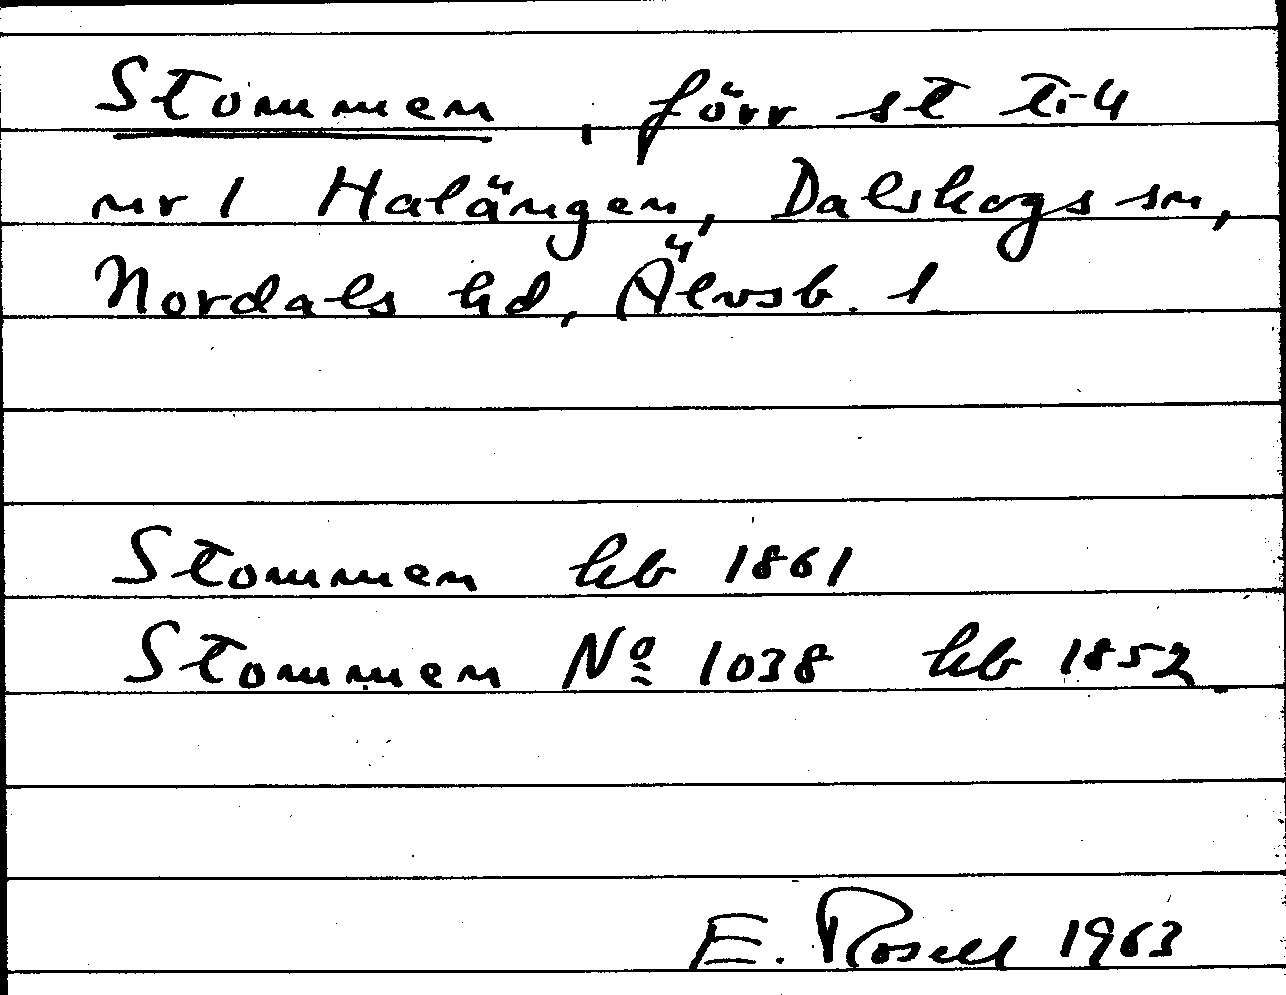 Stommen, förr st till
nr 1 Halängen, Dalskogs sn,
Nordals hd, Älvsb. l
Stommen hb 1861
Stommen Nº 1038 hb 1852
E. Rosell 1963